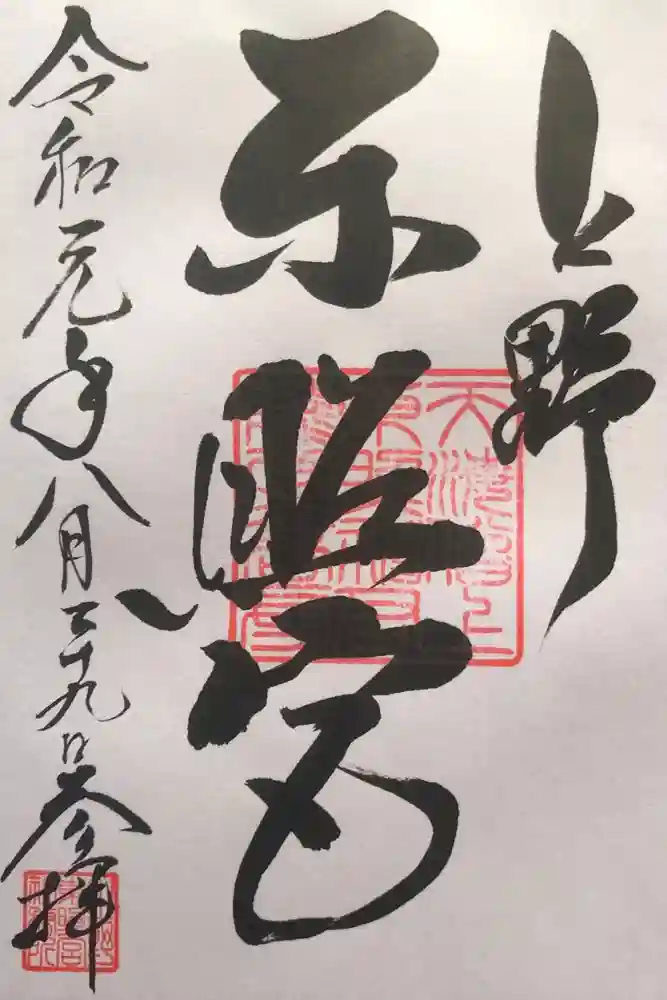 上野
東照宮
令和元年八月二十九日参拝